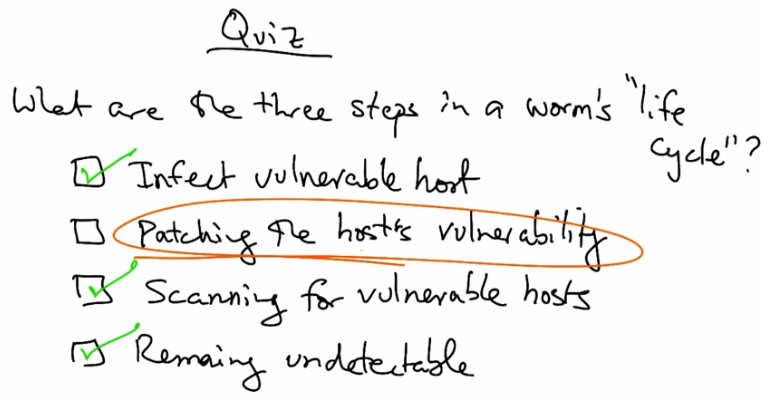 Quiz
What are the three steps in a worm's "life
cycle"?
Infect vulnerable host
Patching the host's vulnerability
Scanning for vulnerable hosts
Remaing undetectable